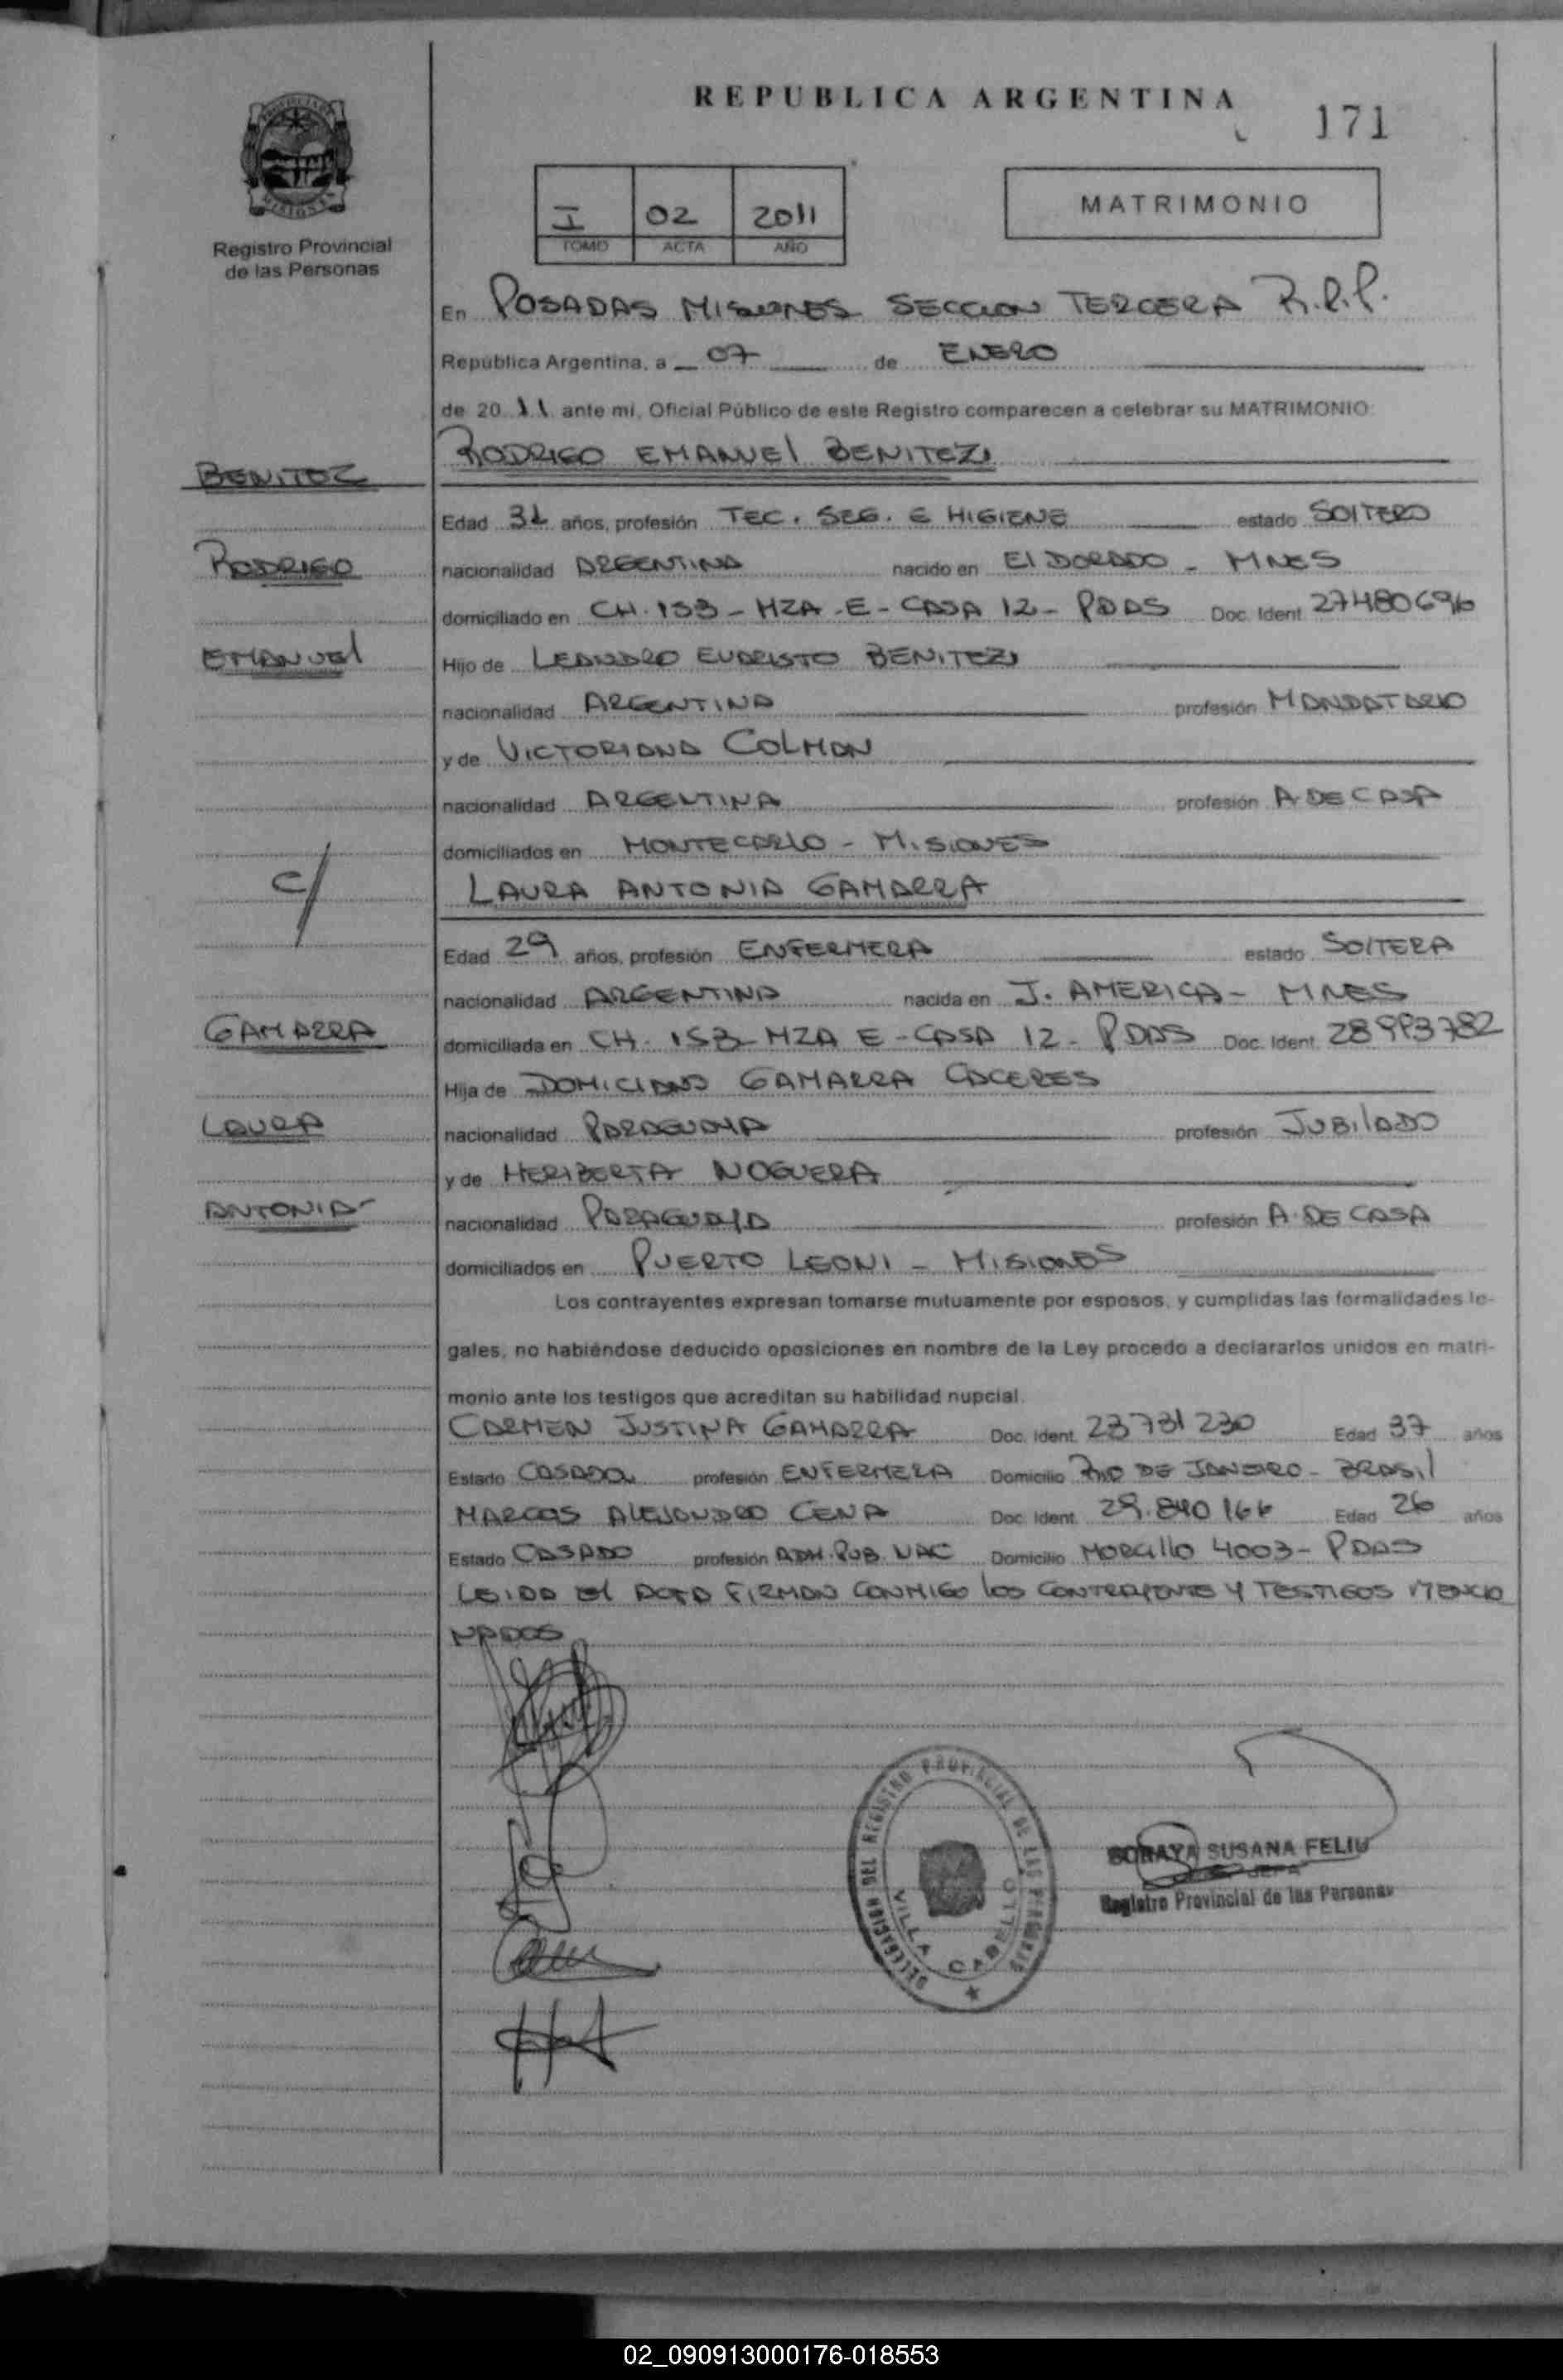 REPUBLICA ARGENTINA
171
I 02 2011
TOMO ACTA AÑO
MATRIMONIO
Registro Provincial
de las Personas
En POSADAS MISIONES SECCION TERCERA R.P.P.
República Argentina, a 07 de ENERO
de 20 11 ante mi, Oficial Público de este Registro comparecen a celebrar su MATRIMONIO
RODRIGO EMANUEl BENITEZ
BENITEZ
Edad 31 años, profesión TEC. SEG. E HIGIENE estado SOlTERO
RODRIGO
nacionalidad ARGENTINA nacido en El DORADO - MNES
domiciliado en CH. 153 - MZA - E - CASA 12 - PDAS Doc. Ident. 27480696
EMANUEl
Hijo de LEANDRO EVARISTO BENITEZ
nacionalidad ARGENTINA profesión MANDATARIO
y de VICTORIANA COLMAN
nacionalidad ARGENTINA profesión A. DE CASA
domiciliados en MONTECARLO - MISIONES
C/
LAURA ANTONIA GAMARRA
Edad 29 años, profesión ENFERMERA estado SOlTERA
nacionalidad ARGENTINA nacida en J. AMERICA - MNES
GAMARRA
domiciliada en CH. 153 - MZA E - CASA 12 - PDAS Doc. Ident. 28993782
Hija de DOMICIANO GAMARRA CACERES
LAURA
nacionalidad PARAGUAYA profesión JUBIlADO
y de HERIBERTA NOGUERA
ANTONIA
nacionalidad PARAGUAYA profesión A. DE CASA
domiciliados en PUERTO LEONI - MISIONES
Los contrayentes expresan tomarse mutuamente por esposos, y cumplidas las formalidades le-
gales, no habiéndose deducido oposiciones en nombre de la Ley procedo a declararlos unidos en matri-
monio ante los testigos que acreditan su habilidad nupcial.
CARMEN JUSTINA GAMARRA Doc. Ident. 23731230 Edad 37 años
Estado CASADA profesión ENFERMERA Domicilio RIO DE JANEIRO - BRASIl
MARCOS ALEJANDRO CENA Doc. Ident. 29.840166 Edad 26 años
Estado CASADO profesión ADM. PUB. NAC Domicilio 4003 - PDAS
LEIDA El ACTA FIRMAN CONMIGO lOS CONTRAYENTES Y TESTIGOS MENCIO
NADOS
DELEGACION DEL REGISTRO PROVINCIAL DE LAS PERSONAS
VILLA CABELLO
SORAYA SUSANA FELIU
JEFA
Registro Provincial de las Personas
02_090913000176-018553